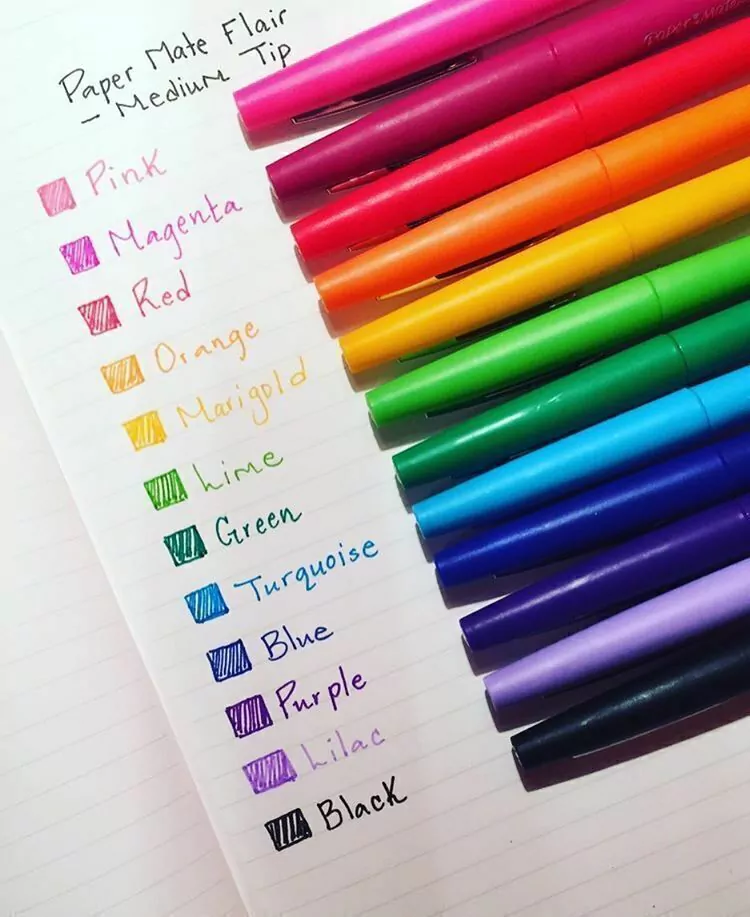 Paper Mate Flair
- Medium Tip
Pink
Magenta
Red
Orange
Marigold
Lime
Green
Turquoise
Blue
Purple
Lilac
Black
Paper:Mate